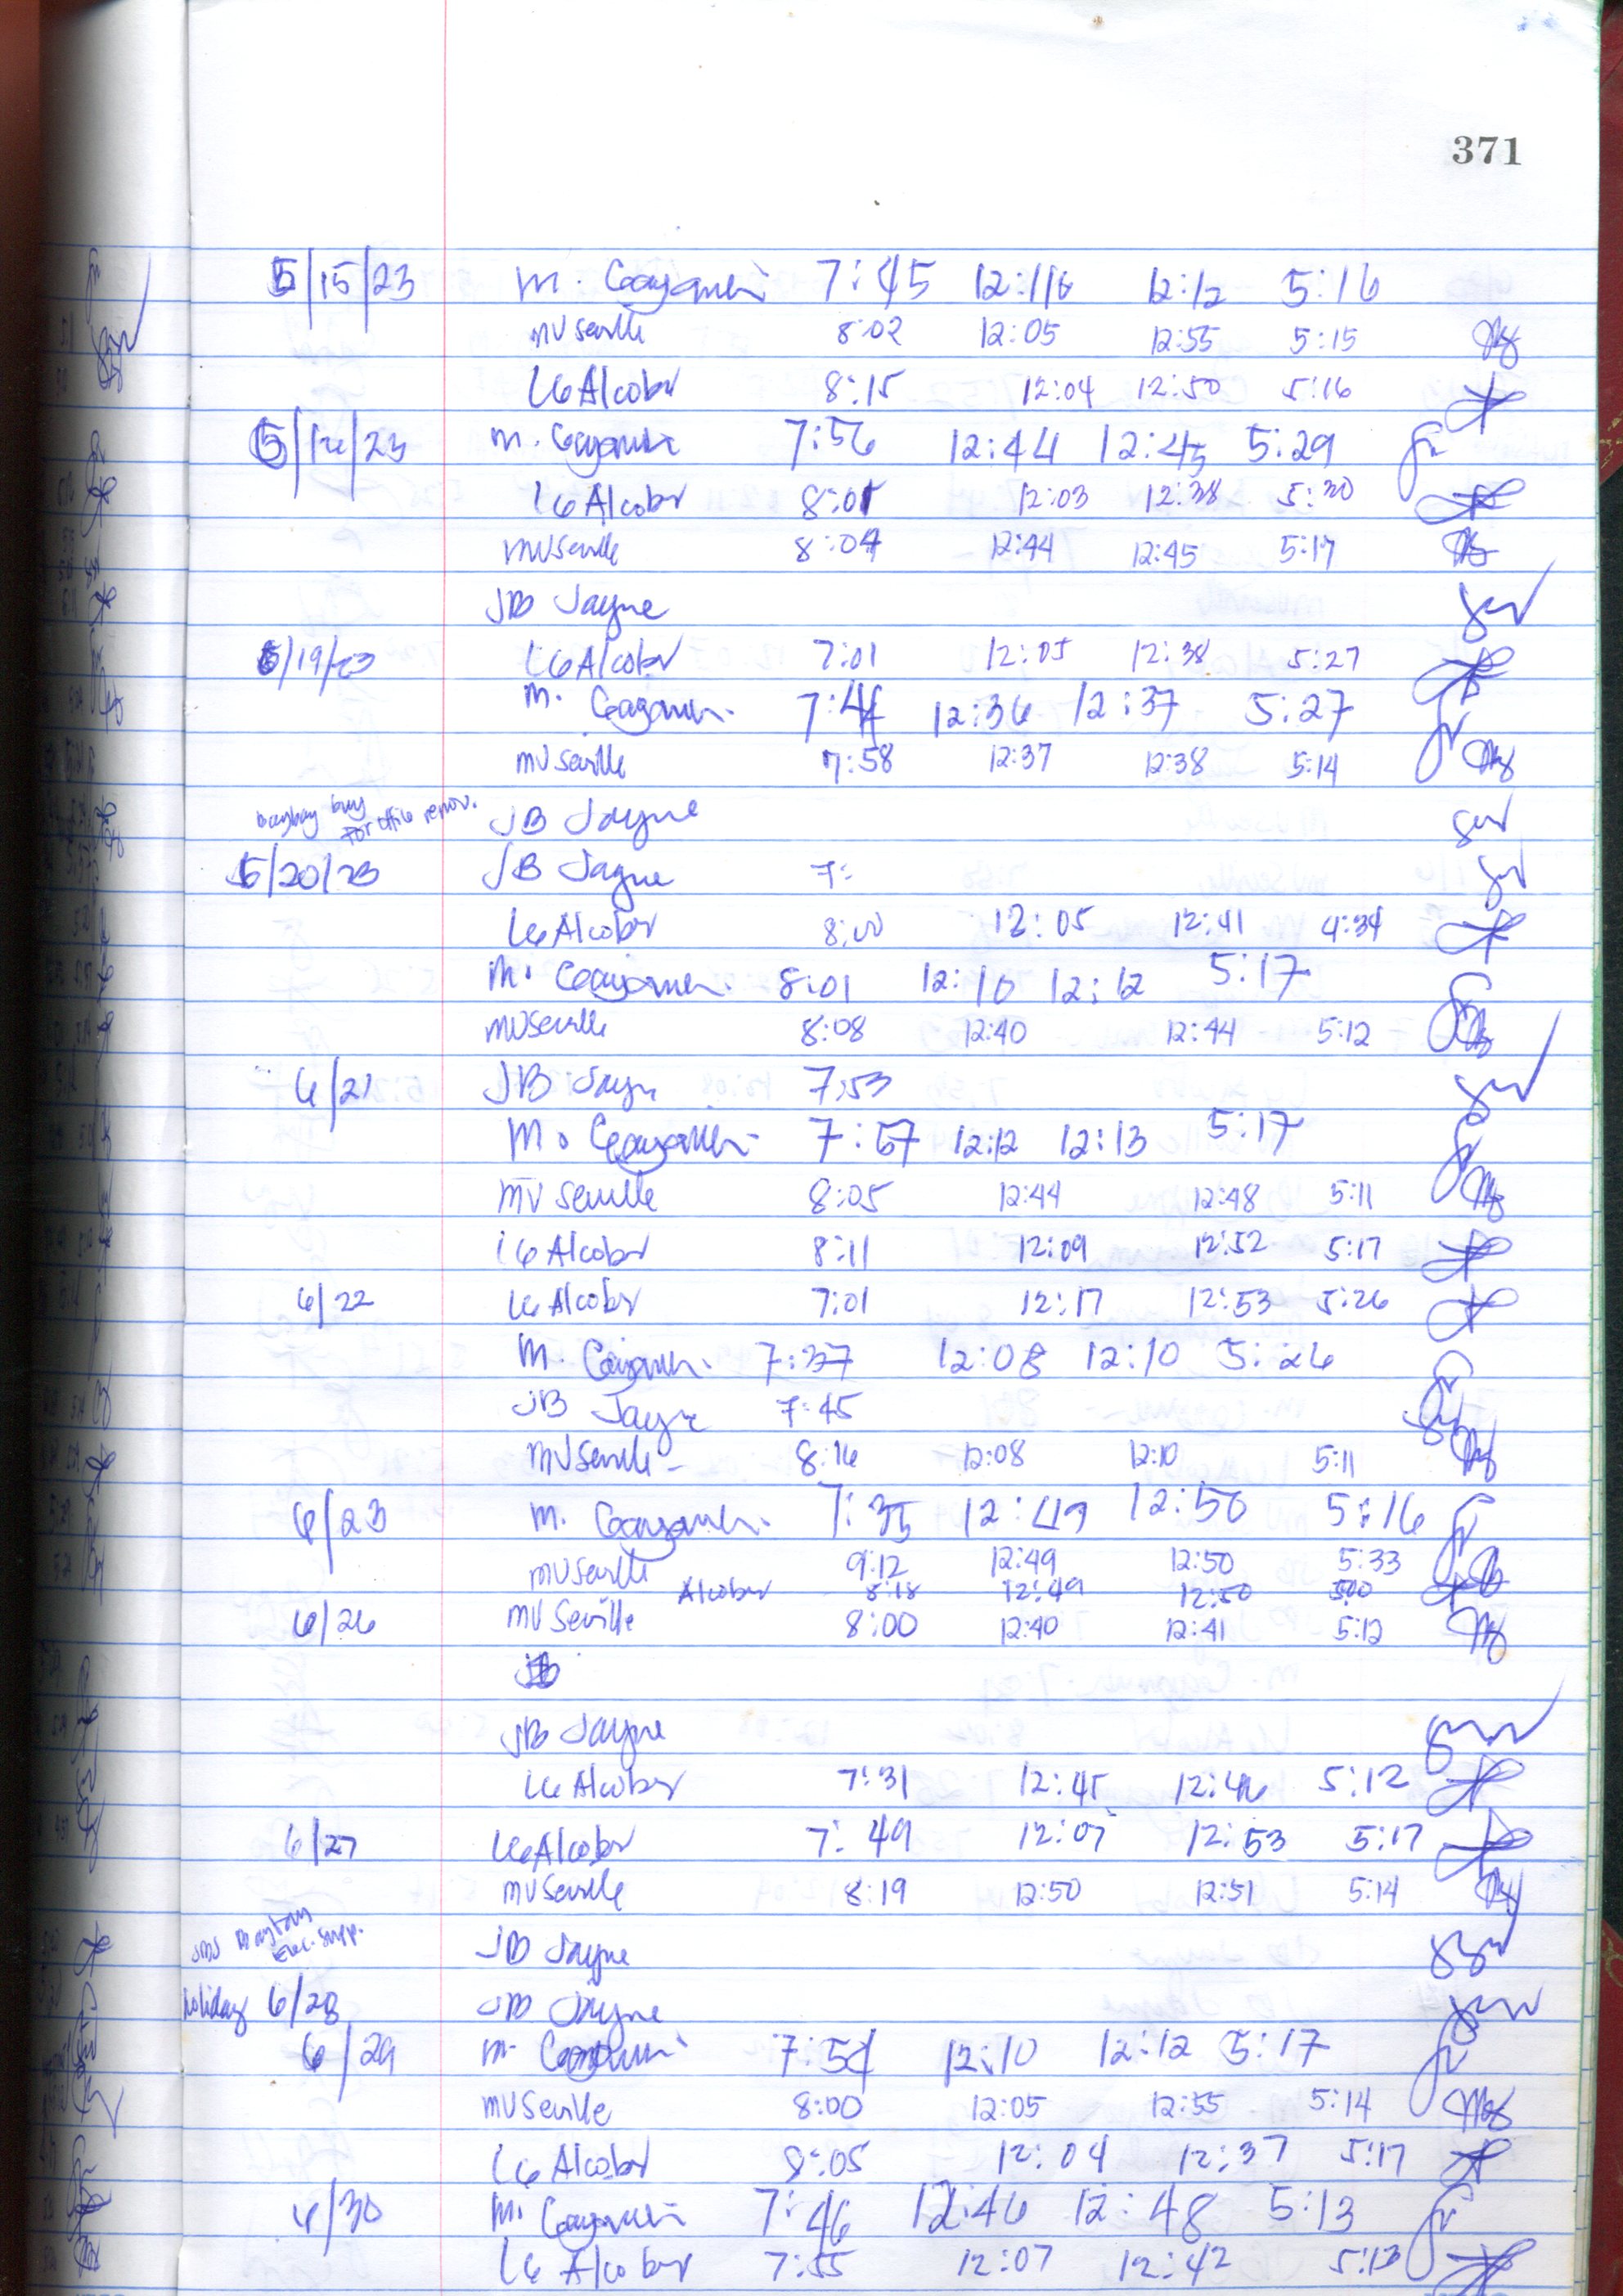 371
5/15/23 M. 7:45 12:16 12:12 5:16
MV Seville 8:02 12:05 12:55 5:15
LG Alcober 8:15 12:04 12:50 5:16
5/16/23 M. 7:56 12:44 12:45 5:29
LG Alcober 8:01 12:03 12:38 5:30
MV Seville 8:04 12:44 12:45 5:17
JB Jayne
5/19/23 LG Alcober 7:01 12:05 12:38 5:27
M. 7:44 12:36 12:37 5:27
MV Seville 7:58 12:37 12:38 5:14
baybay buy for office renov. JB Jayne
5/20/23 JB Jayne 7:
LG Alcober 8:00 12:05 12:41 4:34
M. 8:01 12:10 12:12 5:17
MV Seville 8:08 12:40 12:44 5:12
6/21 JB Jayne 7:53
M. 7:57 12:12 12:13 5:17
MV Seville 8:05 12:44 12:48 5:11
LG Alcober 8:11 12:09 12:52 5:17
6/22 LG Alcober 7:01 12:17 12:53 5:26
M. 7:37 12:08 12:10 5:26
JB Jayne 7:45
MV Seville - 8:16 12:08 12:10 5:11
6/23 M. 7:35 12:49 12:50 5:16
MV Seville 9:12 12:49 12:50 5:33
Alcober 8:18 12:49 12:50 5:00
6/26 MV Seville 8:00 12:40 12:41 5:12
JB
JB Jayne
LG Alcober 7:31 12:45 12:46 5:12
6/27 LG Alcober 7:49 12:07 12:53 5:17
MV Seville 8:19 12:50 12:51 5:14
Baybay Exec. Supp. JB Jayne
holiday 6/28 JB Jayne
6/29 M. 7:54 12:10 12:12 5:17
MV Seville 8:00 12:05 12:55 5:14
LG Alcober 8:05 12:04 12:37 5:17
6/30 M. 7:46 12:46 12:48 5:13
LG Alcober 7:55 12:07 12:42 5:13